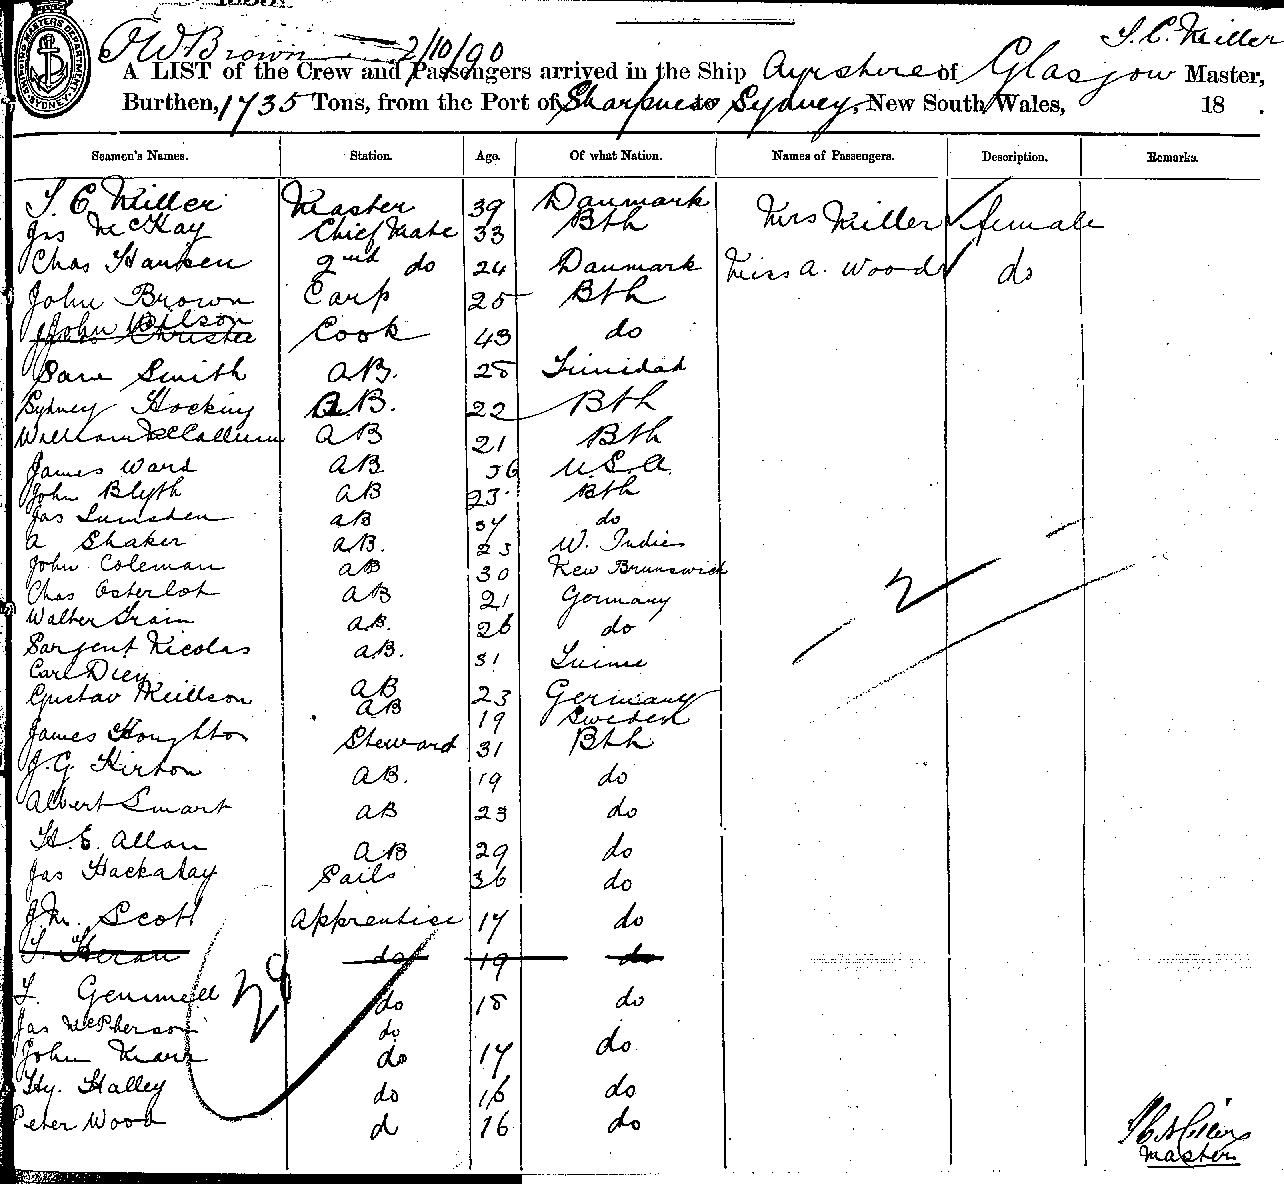 FW Brown 2/10/90
T. C. Miller
A LIST of the Crew and Passengers arrived in the Ship Ayrshire of Glasgow Master,
Burthen, 1735 Tons, from the Port of Sharpness to Sydney, New South Wales, 18 .
Seamen's Names. Station. Age. Of what Nation. Names of Passengers. Description. Remarks.
T. C. Miller Master 39 Danmark Mrs Miller female
Jas McKay Chief Mate 33 Bth
Chas Hansen 2nd do 24 Danmark Miss A. Wood do
John Brown Carp 25 Bth
John Wilson
Christie Cook 43 do
Sam Smith AB. 28 Trinidad
Sydney Hocking A.B. 22 Bth
William McCallum AB 21 Bth
James Ward AB 36 U.S.A.
John Blyth AB 23 Bth
Jas Lumsden AB 37 do
A Shaker AB. 23 W. Indies
John Coleman AB 30 New Brunswick
Chas Osterloh AB 21 Germany
Walter AB. 26 do
Sargent Nicolas AB. 31
Carl Dien AB 23 Germany
Gustav Neillson AB 19 Sweden
James Houghton Steward 31 Bth
J. G. Kirton AB. 19 do
Albert Smart AB 23 do
H. E. Allan AB 29 do
Jas Hackaday Sails 36 do
Scott Apprentice 17 do
T. Heran do 19 do
T. Gemmell do 18 do
Jas McPherson do
John Marr do 17 do
Hy. Halley do 16 do
Peter Wood d 16 do
28
2
T C Miller
Master